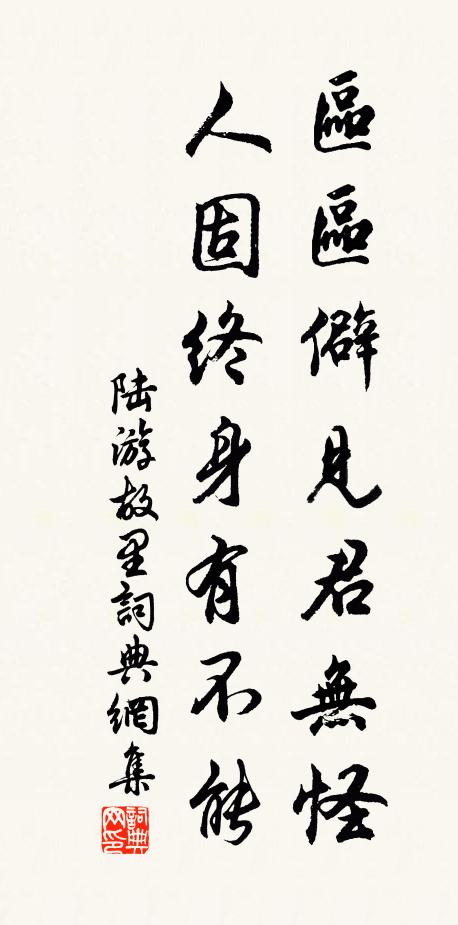 區區僻見君無怪
人固終身有不能
陆游故里詞典網集
詞典网印